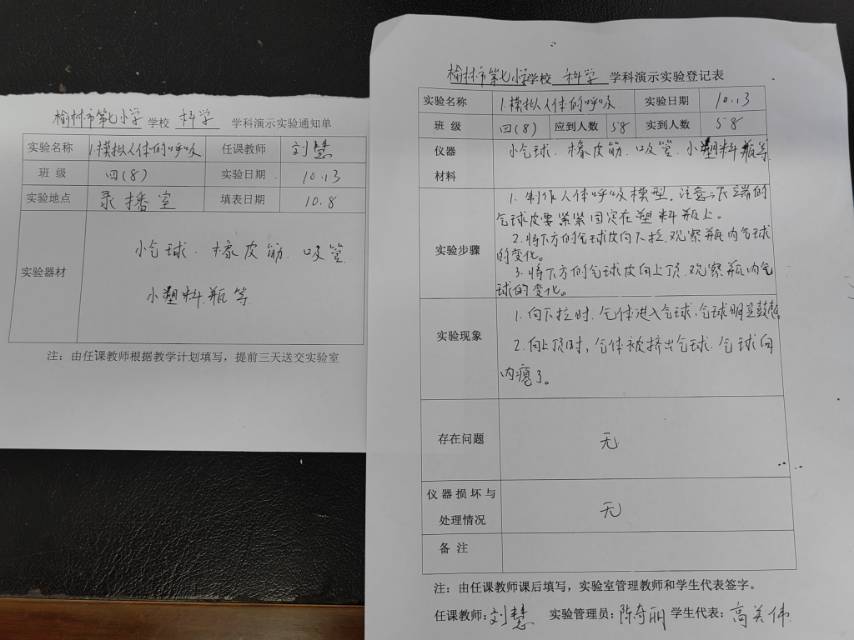 榆林市第七小学 学校 科学 学科演示实验通知单
实验名称 1.模拟人体的呼吸 任课教师 刘慧
班 级 四(8) 实验日期 10.13
实验地点 录播室 填表日期 10.8
实验器材 小气球、橡皮筋、吸管
小塑料瓶等
注：由任课教师根据教学计划填写，提前三天送交实验室
榆林市第七小学学校 科学 学科演示实验登记表
实验名称 1.模拟人体的呼吸 实验日期 10.13
班 级 四(8) 应到人数 58 实到人数 58
仪器 小气球、橡皮筋、吸管、小塑料瓶等
材料
实验步骤
1.制作人体呼吸模型，注意：下端的
气球皮要紧紧固定在塑料瓶上。
2.将下方的气球皮向下拉，观察瓶内气球
的变化。
3.将下方的气球皮向上顶，观察瓶内气
球的变化。
实验现象
1.向下拉时，气体进入气球，气球明显鼓起
2.向上顶时，气体被挤出气球，气球向
内瘪了。
存在问题 无
仪器损坏与
处理情况 无
备 注
注：由任课教师课后填写，实验室管理教师和学生代表签字。
任课教师：刘慧 实验管理员：陈奇丽 学生代表：高美伟